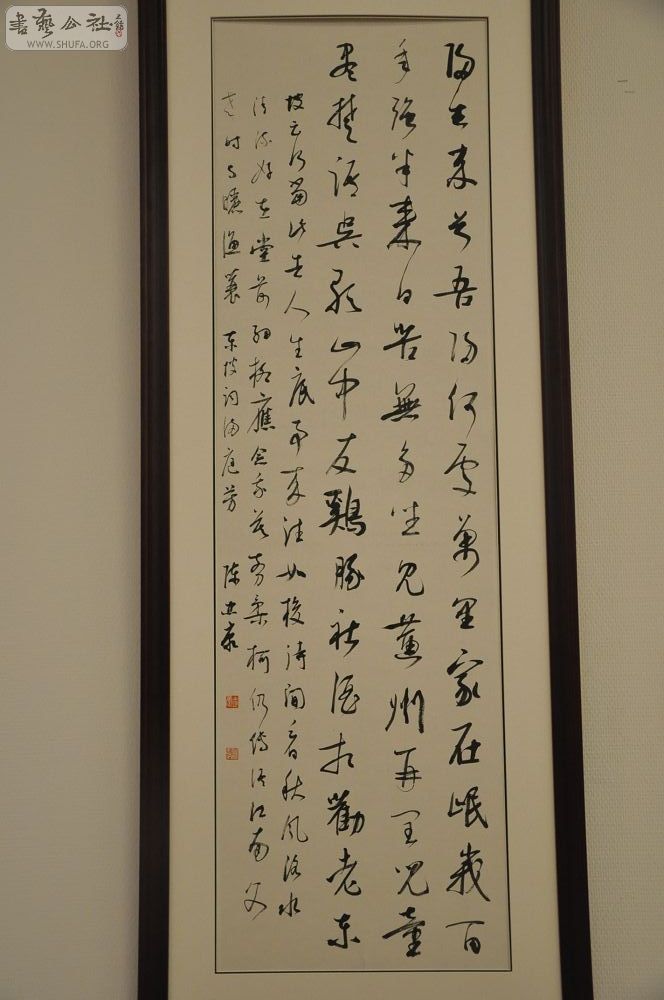 書藝公社
WWW.SHUFA.ORG
归去来兮吾归何处萬里家在岷峨百
年強半来日苦無多坐见黄州再闰兒童
尽楚语吴歌山中友鷄豚社酒相勸老东
坡云何當此去人生底事来往如梭待閒看秋风洛水
清波好在堂前细柳應念我莫剪柔柯仍傳语江南父
老时与曬渔蓑 东坡词满庭芳 陈忠康